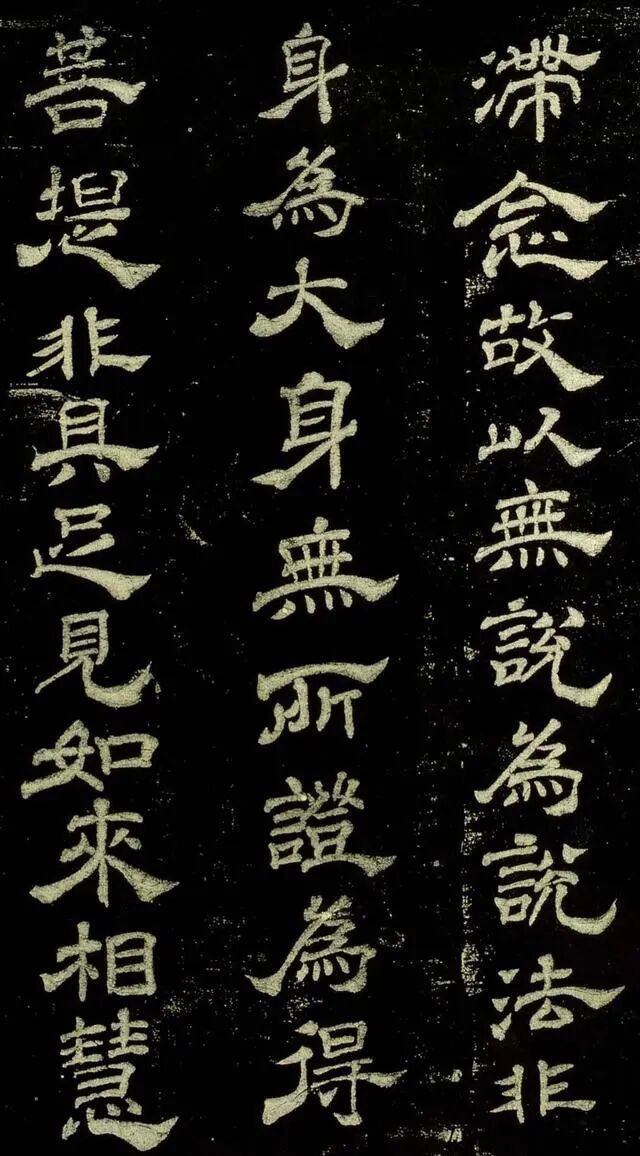 滯念故以無說為說法非
身為大身無所證為得
菩提非具足見如來相慧